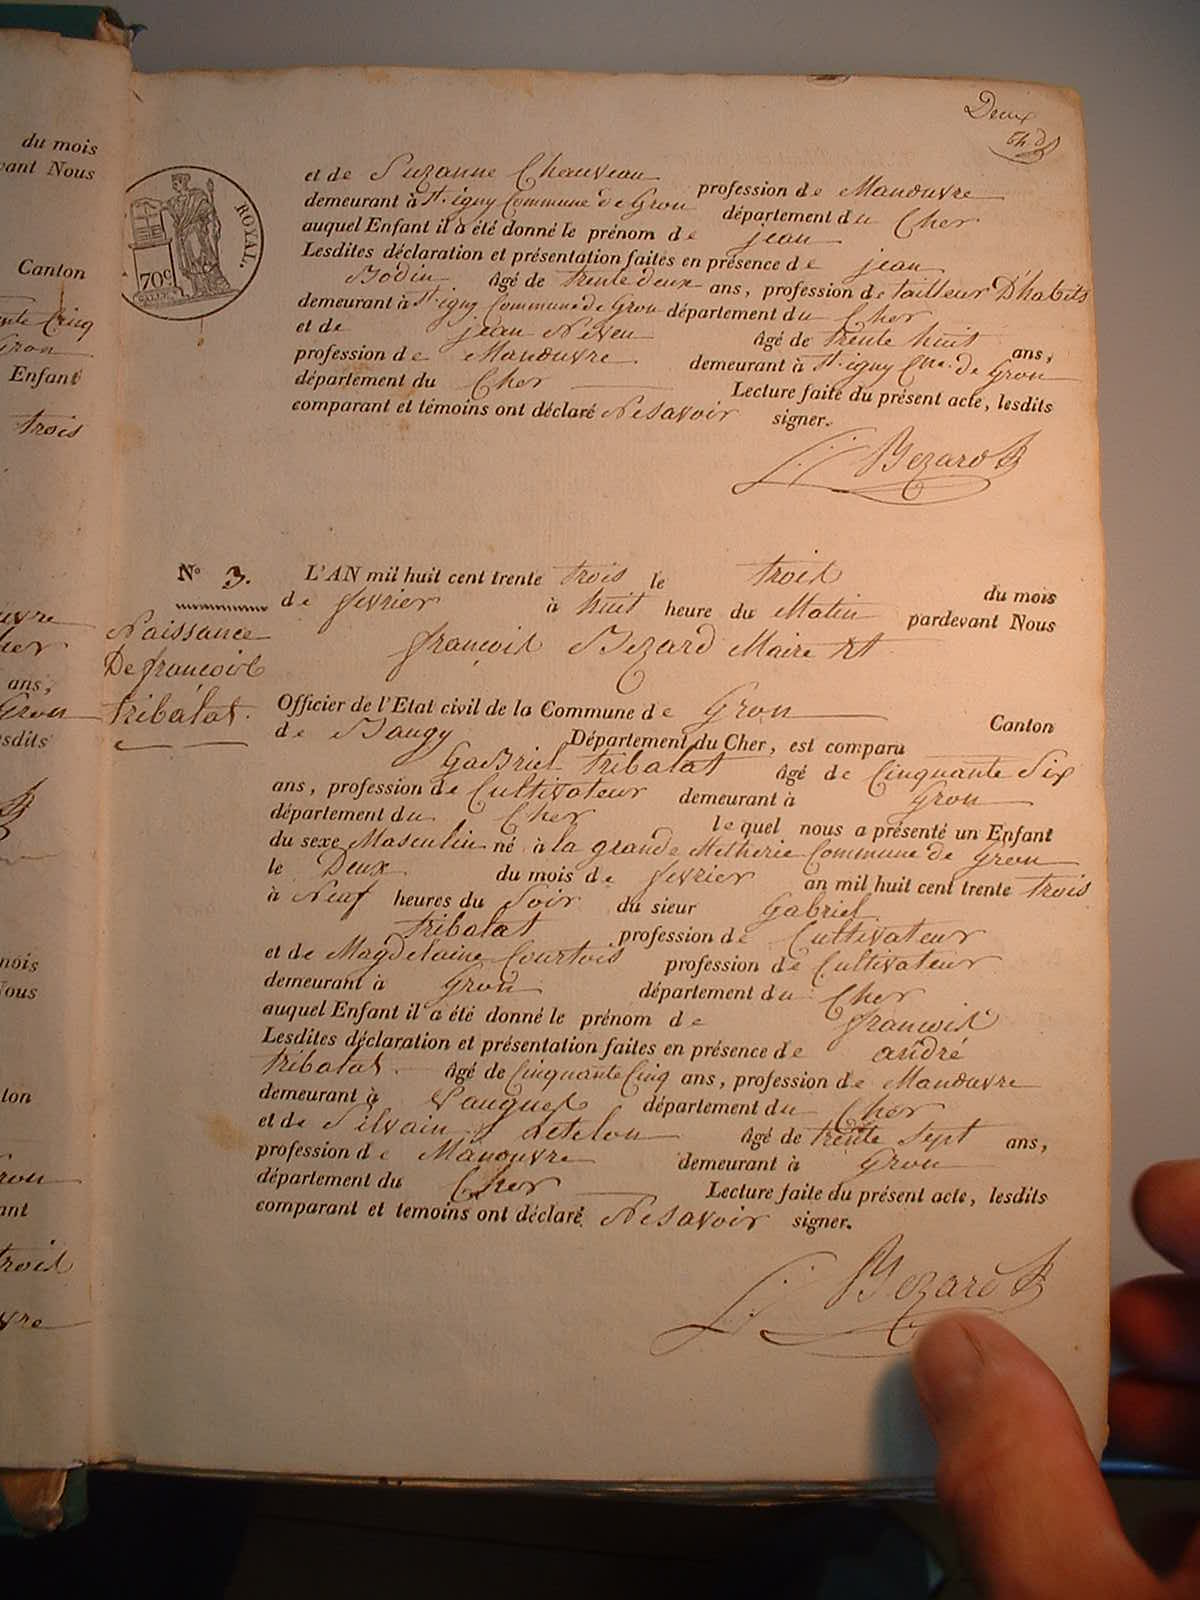 du mois
vant Nous
Canton
nte Cinq
Gron
Enfant
trois
ans,
Gron
esdits
nois
Vous
ton
ron
ant
troil
vre
Deux
ROYAL.
70c
et de Suzanne Chauveau profession de Manouvre
demeurant à St. igny Commune de Gron département du Cher
auquel Enfant il a été donné le prénom de jean
Lesdites déclaration et présentation faites en présence de jean
Bodin âgé de trente deux ans, profession de tailleur D'habits
demeurant à St. igny Commune de Gron département du Cher
et de jean Neveu âgé de trente huit ans,
profession de Manouvre demeurant à St. igny Cne. de Gron
département du Cher Lecture faite du présent acte, lesdits
comparant et témoins ont déclaré Ne savoir signer.
Bezard
No 3. L'AN mil huit cent trente trois le troil du mois
de fevrier à huit heure du Matin pardevant Nous
Naissance
francoil Bezard Maire Et
De francoil
tribalat.
Officier de l'Etat civil de la Commune de Gron Canton
de Baugy Département du Cher, est comparu
Gabriel tribalat âgé de Cinquante Six
ans, profession de Cultivateur demeurant à Gron
département du Cher le quel nous a présenté un Enfant
du sexe Masculin né à la grande Metherie Commune de Gron
le Deux du mois de fevrier an mil huit cent trente trois
à Neuf heures du Soir du sieur Gabriel
tribalat profession de Cultivateur
et de Magdelaine Courtois profession de Cultivateur
demeurant à Gron département du Cher
auquel Enfant il a été donné le prénom de francoil
Lesdites déclaration et présentation faites en présence de andré
tribalat âgé de Cinquante Cinq ans, profession de Manouvre
demeurant à département du Cher
et de Silvain âgé de trente sept ans,
profession de Manouvre demeurant à Gron
département du Cher Lecture faite du présent acte, lesdits
comparant et temoins ont déclaré Ne savoir signer.
Bezard